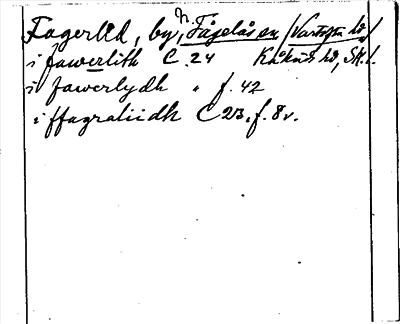 Fagerlid, by, N. Fågelås sn /Vartofta hd/
i fawerlith C 24 Kåkinds hd, Sk. l.
i fawerlydh " f. 42
i ffagraliidh C 23, f. 8 v.